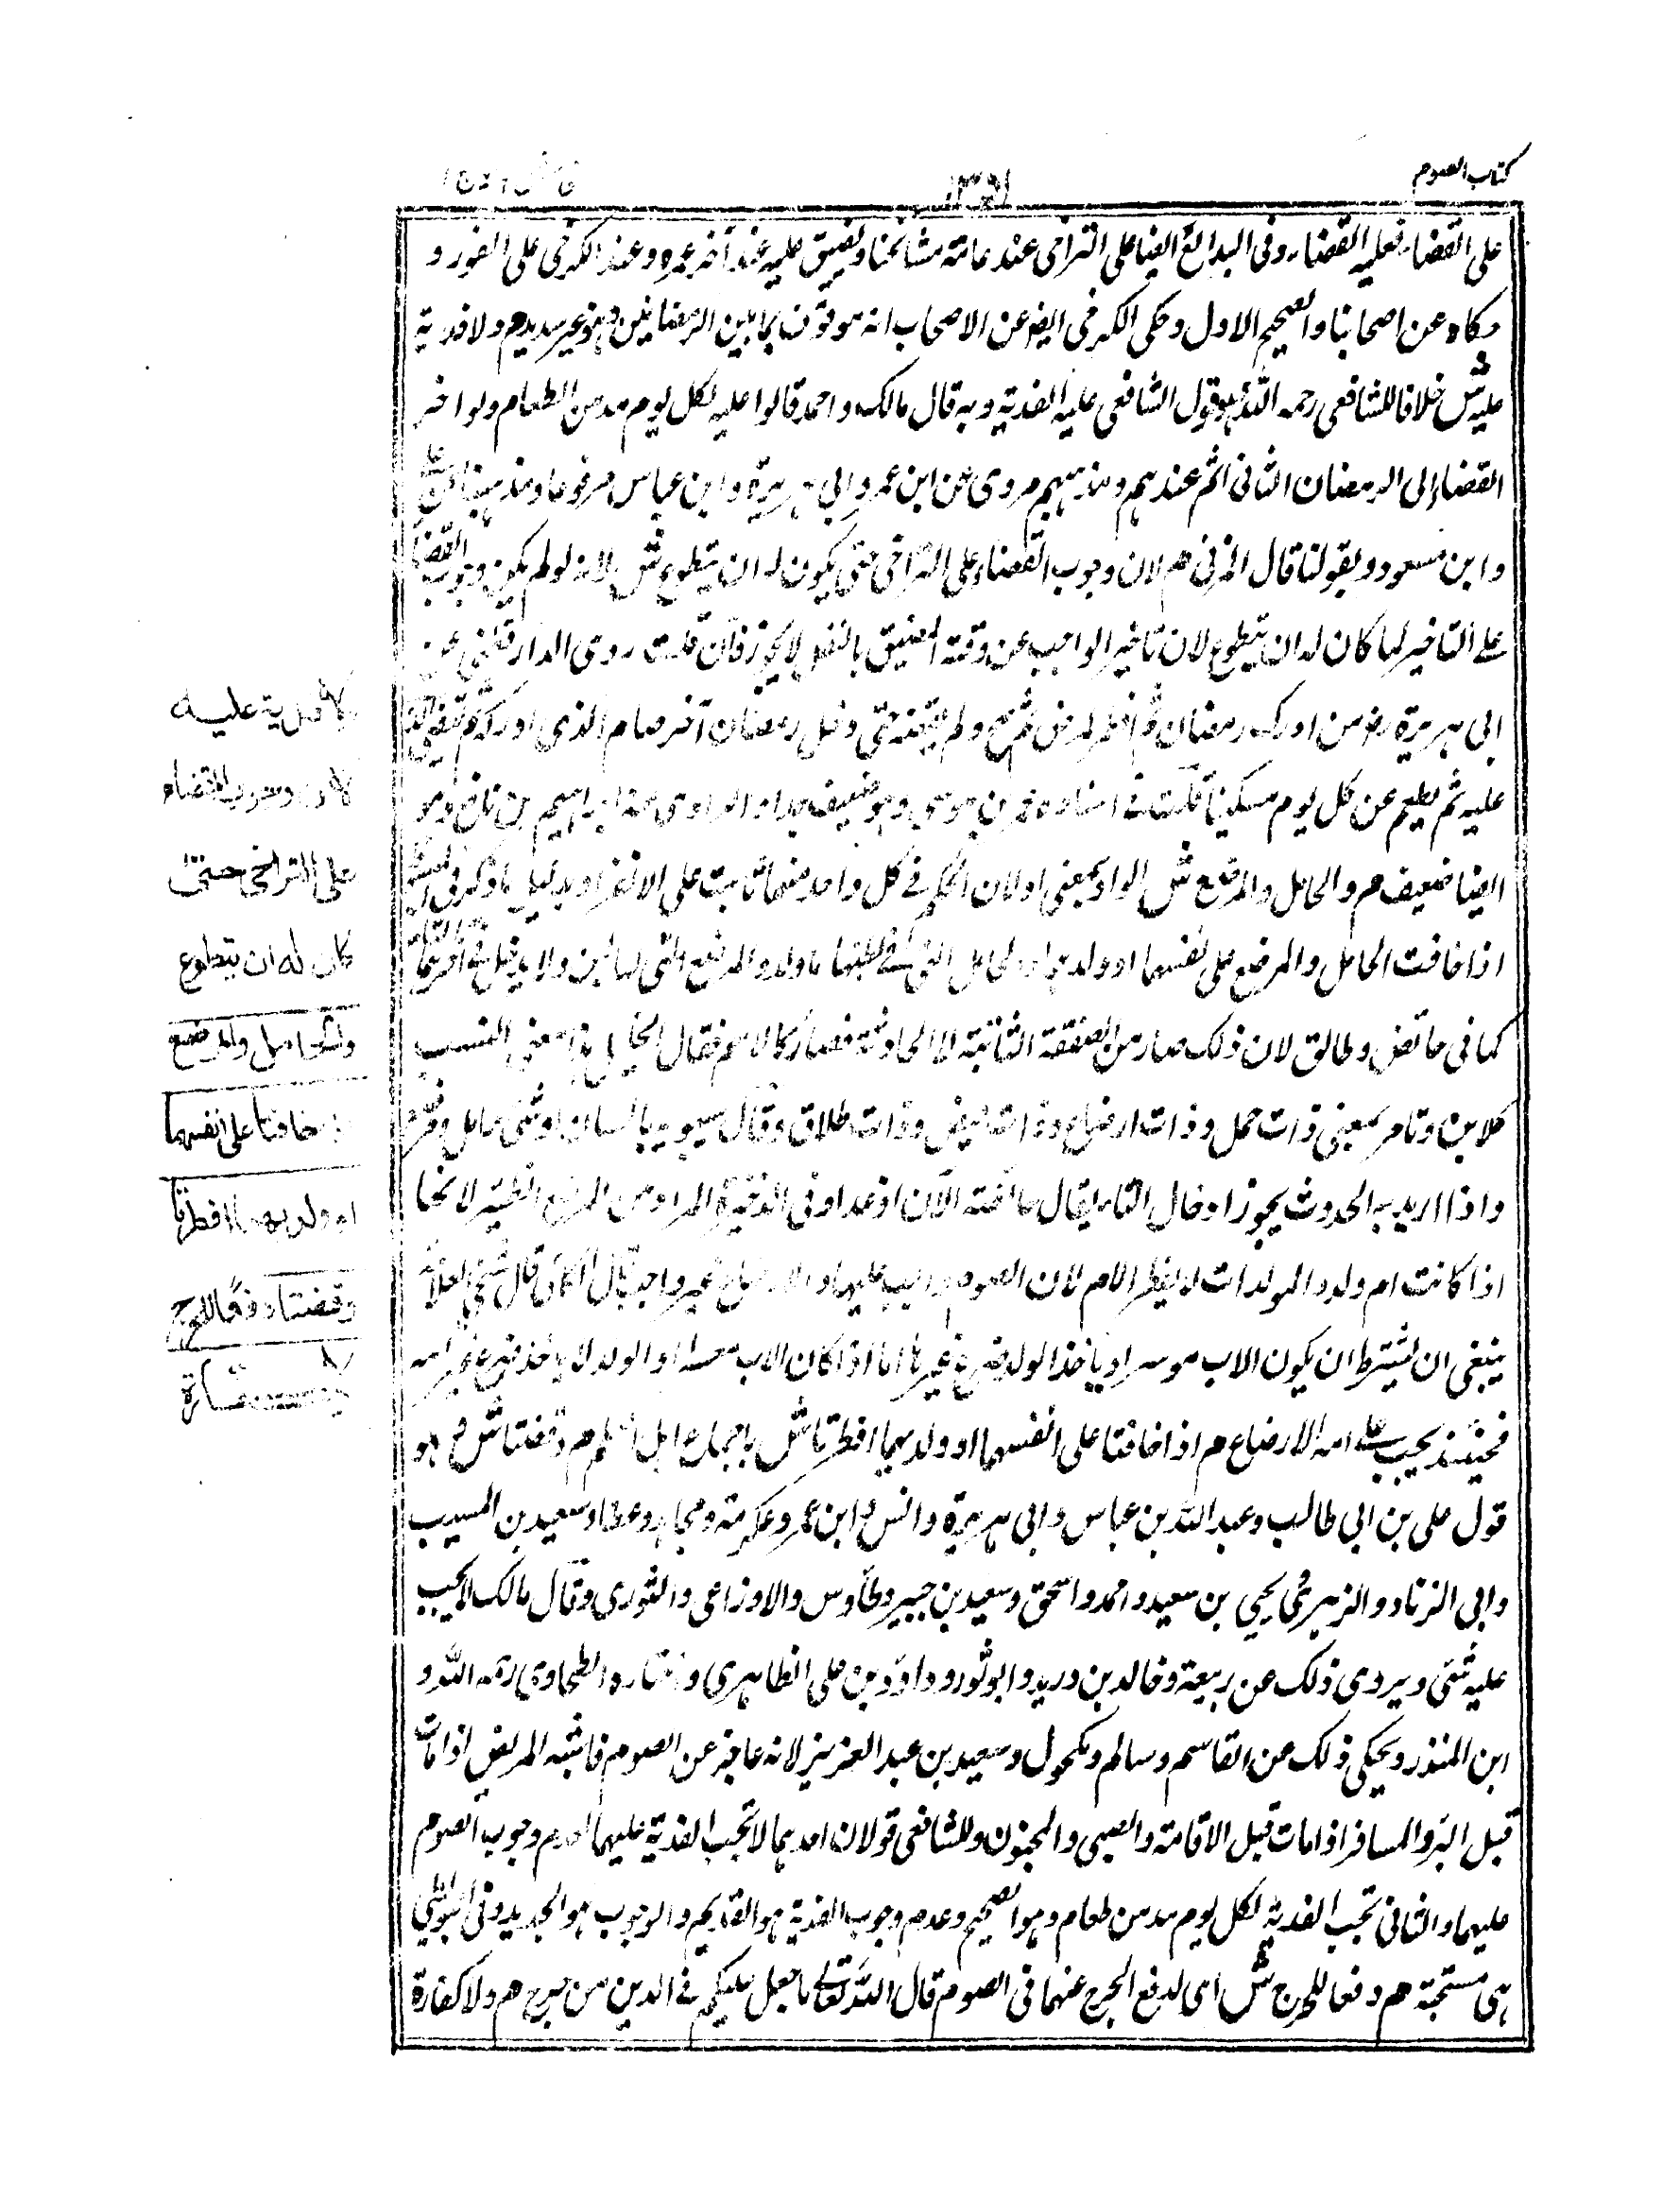 كتاب الصوم
١٣٥١
على القضاء فعليه القضاء وفى البدائع ايضا على التراخى عند عامة مشائخنا ويضيق عليه عند آخر عمره وعند الكرخى على الفور و
حكاه عن اصحابنا والصحيح الاول وحكى الكرخى ايضا عن الاصحاب انه موقوت بما بين الرمضانين وهو غير سديد م ولا فدية
عليه ش خلافا للشافعى رحمه الله هو قول الشافعى عليه الفدية وبه قال مالك واحمد قالوا عليه لكل يوم مد من الطعام ولو اخر
القضاء الى الرمضان الثانى اثم عندهم ومذهبهم مروى عن ابن عمر وابى هريرة وابن عباس مرفوعا ومذهبنا عن على
وابن مسعود وبقولنا قال المزنى هم لان وجوب القضاء على التراخى حتى يكون له ان يتطوع ش لانه لو لم يكن وجوب القضاء
على التاخير لما كان له ان يتطوع لان تاخير الواجب عن وقته المضيق بالنفل لا يجوز فان قلت روى الدارقطنى عن
ابى هريرة رض من ادرك رمضان فافطر لمرض ثم صح ولم يقضه حتى دخل رمضان آخر صام الذى ادركه ثم يقضى
عليه ثم يطعم عن كل يوم مسكينا قلت فى اسناده عمر بن موسى وهو ضعيف جدا والراوى عنه ابراهيم بن نافع وهو
ايضا ضعيف م والحامل والمرضع ش الواو بمعنى او لان الحكم فى كل واحد منهما ثابت على الانفراد بدليل ما ذكر فى
اذا خافت الحامل والمرضع على نفسها او ولدها والحامل التى فى بطنها ولد والمرضع التى لها لبن ولا يدخل فى آخرهما
كما فى حائض وطالق لان ذلك صار من الصفة الثابتة لا الحادثة فصار كالاسم فقال الخليل هذا معنى النسب
كلابن وتامر بمعنى ذات حمل وذات ارضاع وذات حيض وذات طلاق وقال سيبويه بالسان او شىء حامل
واذا اريد به الحدوث يجوز ادخال التاء يقال حائضة الآن او غدا وفى الذخيرة المراد من المرضع الظئر لانها
اذا كانت ام ولد والمولدات لا يفطر الام لان الصوم واجب عليها والارضاع غير واجب قال الكاكى قال شيخى العلامة
ينبغى ان يشترط ان يكون الاب موسرا ويأخذ الولد ضرع غيرها اما اذا كان الاب معسرا او الولد لا يأخذ ضرع غير امه
فحينئذ يجب على امه الارضاع م اذا خافتا على انفسهما او ولديهما افطرتا ش باجماع اهل العلم م وقضتا ش هو
قول على بن ابى طالب وعبد الله بن عباس وابى هريرة وانس وابن عمر وعكرمة ومجاهد وعطا وسعيد بن المسيب
وابى الزناد والزهرى ويحيى بن سعيد واحمد واسحق وسعيد بن جبير وطاوس والاوزاعى والثورى وقال مالك لا يجب
عليه شىء ويروى ذلك عن ربيعة وخالد بن دريد وابو ثور وداود بن على الظاهرى واختاره الطحاوى رحمه الله و
ابن المنذر ويحكى ذلك عن القاسم وسالم ومكحول وسعيد بن عبد العزيز لانه عاجز عن الصوم فاشبه المريض اذا مات
قبل البرء والمسافر اذا مات قبل الاقامة والصبى والمجنون وللشافعى قولان احدهما لا تجب الفدية عليهما لعدم وجوب الصوم
عليهما والثانى تجب الفدية لكل يوم مد من طعام وهو الصحيح وعدم وجوب الفدية هو القديم والوجوب هو الجديد وفى البويطى
هى مستحبة هم دفعا للحرج ش اى لدفع الحرج عنهما فى الصوم قال الله تعالى ما جعل عليكم فى الدين من حرج هم ولا كفارة
لا فدية عليه
لان وجوب القضاء
على التراخى حتى
كان له ان يتطوع
والحامل والمرضع
اذا خافتا على انفسهما
او ولديهما افطرتا
وقضتا دفعا للحرج
ولا كفارة